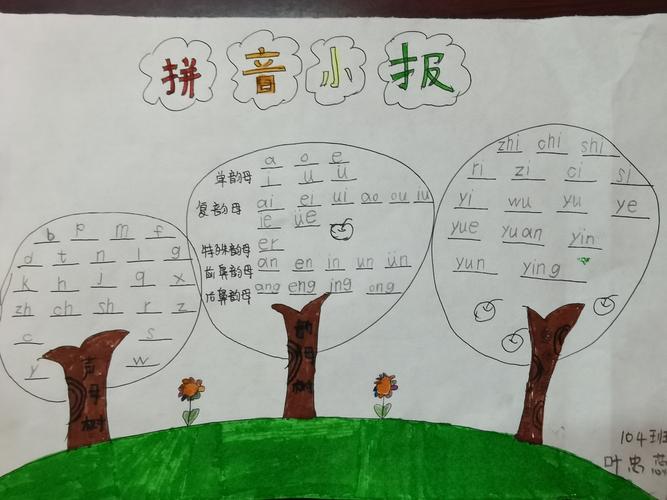 拼音小报
b p m f
d t n l g
k h j q x
zh ch sh r z
c s
y w
声母树
a o e
单韵母 i u ü
复韵母 ai ei ui ao ou iu
ie üe
特殊韵母 er
前鼻韵母 an en in un ün
后鼻韵母 ang eng ing ong
韵母树
zhi chi shi
ri zi ci si
yi wu yu ye
yue yuan yin
yun ying
104班
叶忠